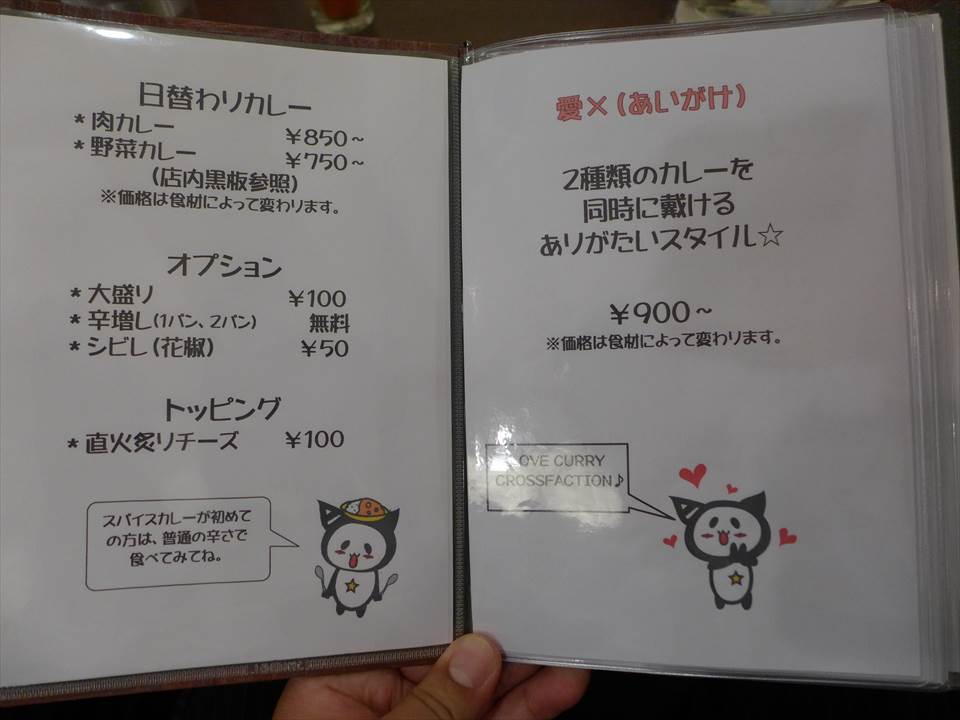 日替わりカレー
* 肉カレー ¥850~
* 野菜カレー ¥750~
(店内黒板参照)
※価格は食材によって変わります。
オプション
* 大盛り ¥100
* 辛増し(1バン、2バン) 無料
* シビレ(花椒) ¥50
トッピング
* 直火炙りチーズ ¥100
スパイスカレーが初めて
の方は、普通の辛さで
食べてみてね。
愛×(あいがけ)
2種類のカレーを
同時に戴ける
ありがたいスタイル☆
¥900~
※価格は食材によって変わります。
CURRY
CROSSFACTION♪